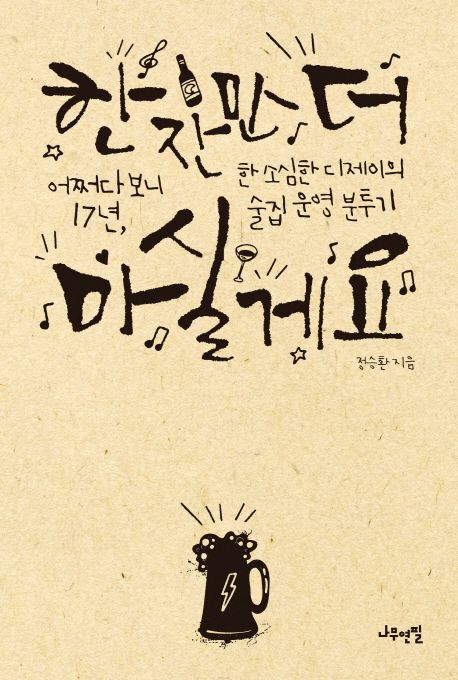 한 잔만 더
어쩌다 보니
17년,
한 소심한 디제이의
술집 운영 분투기
마실게요
정승환 지음
나무연필